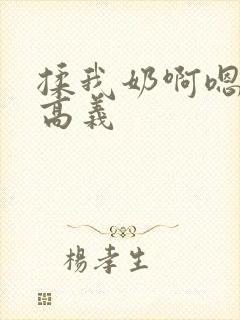 揉我奶啊嗯
高義
楊孝生